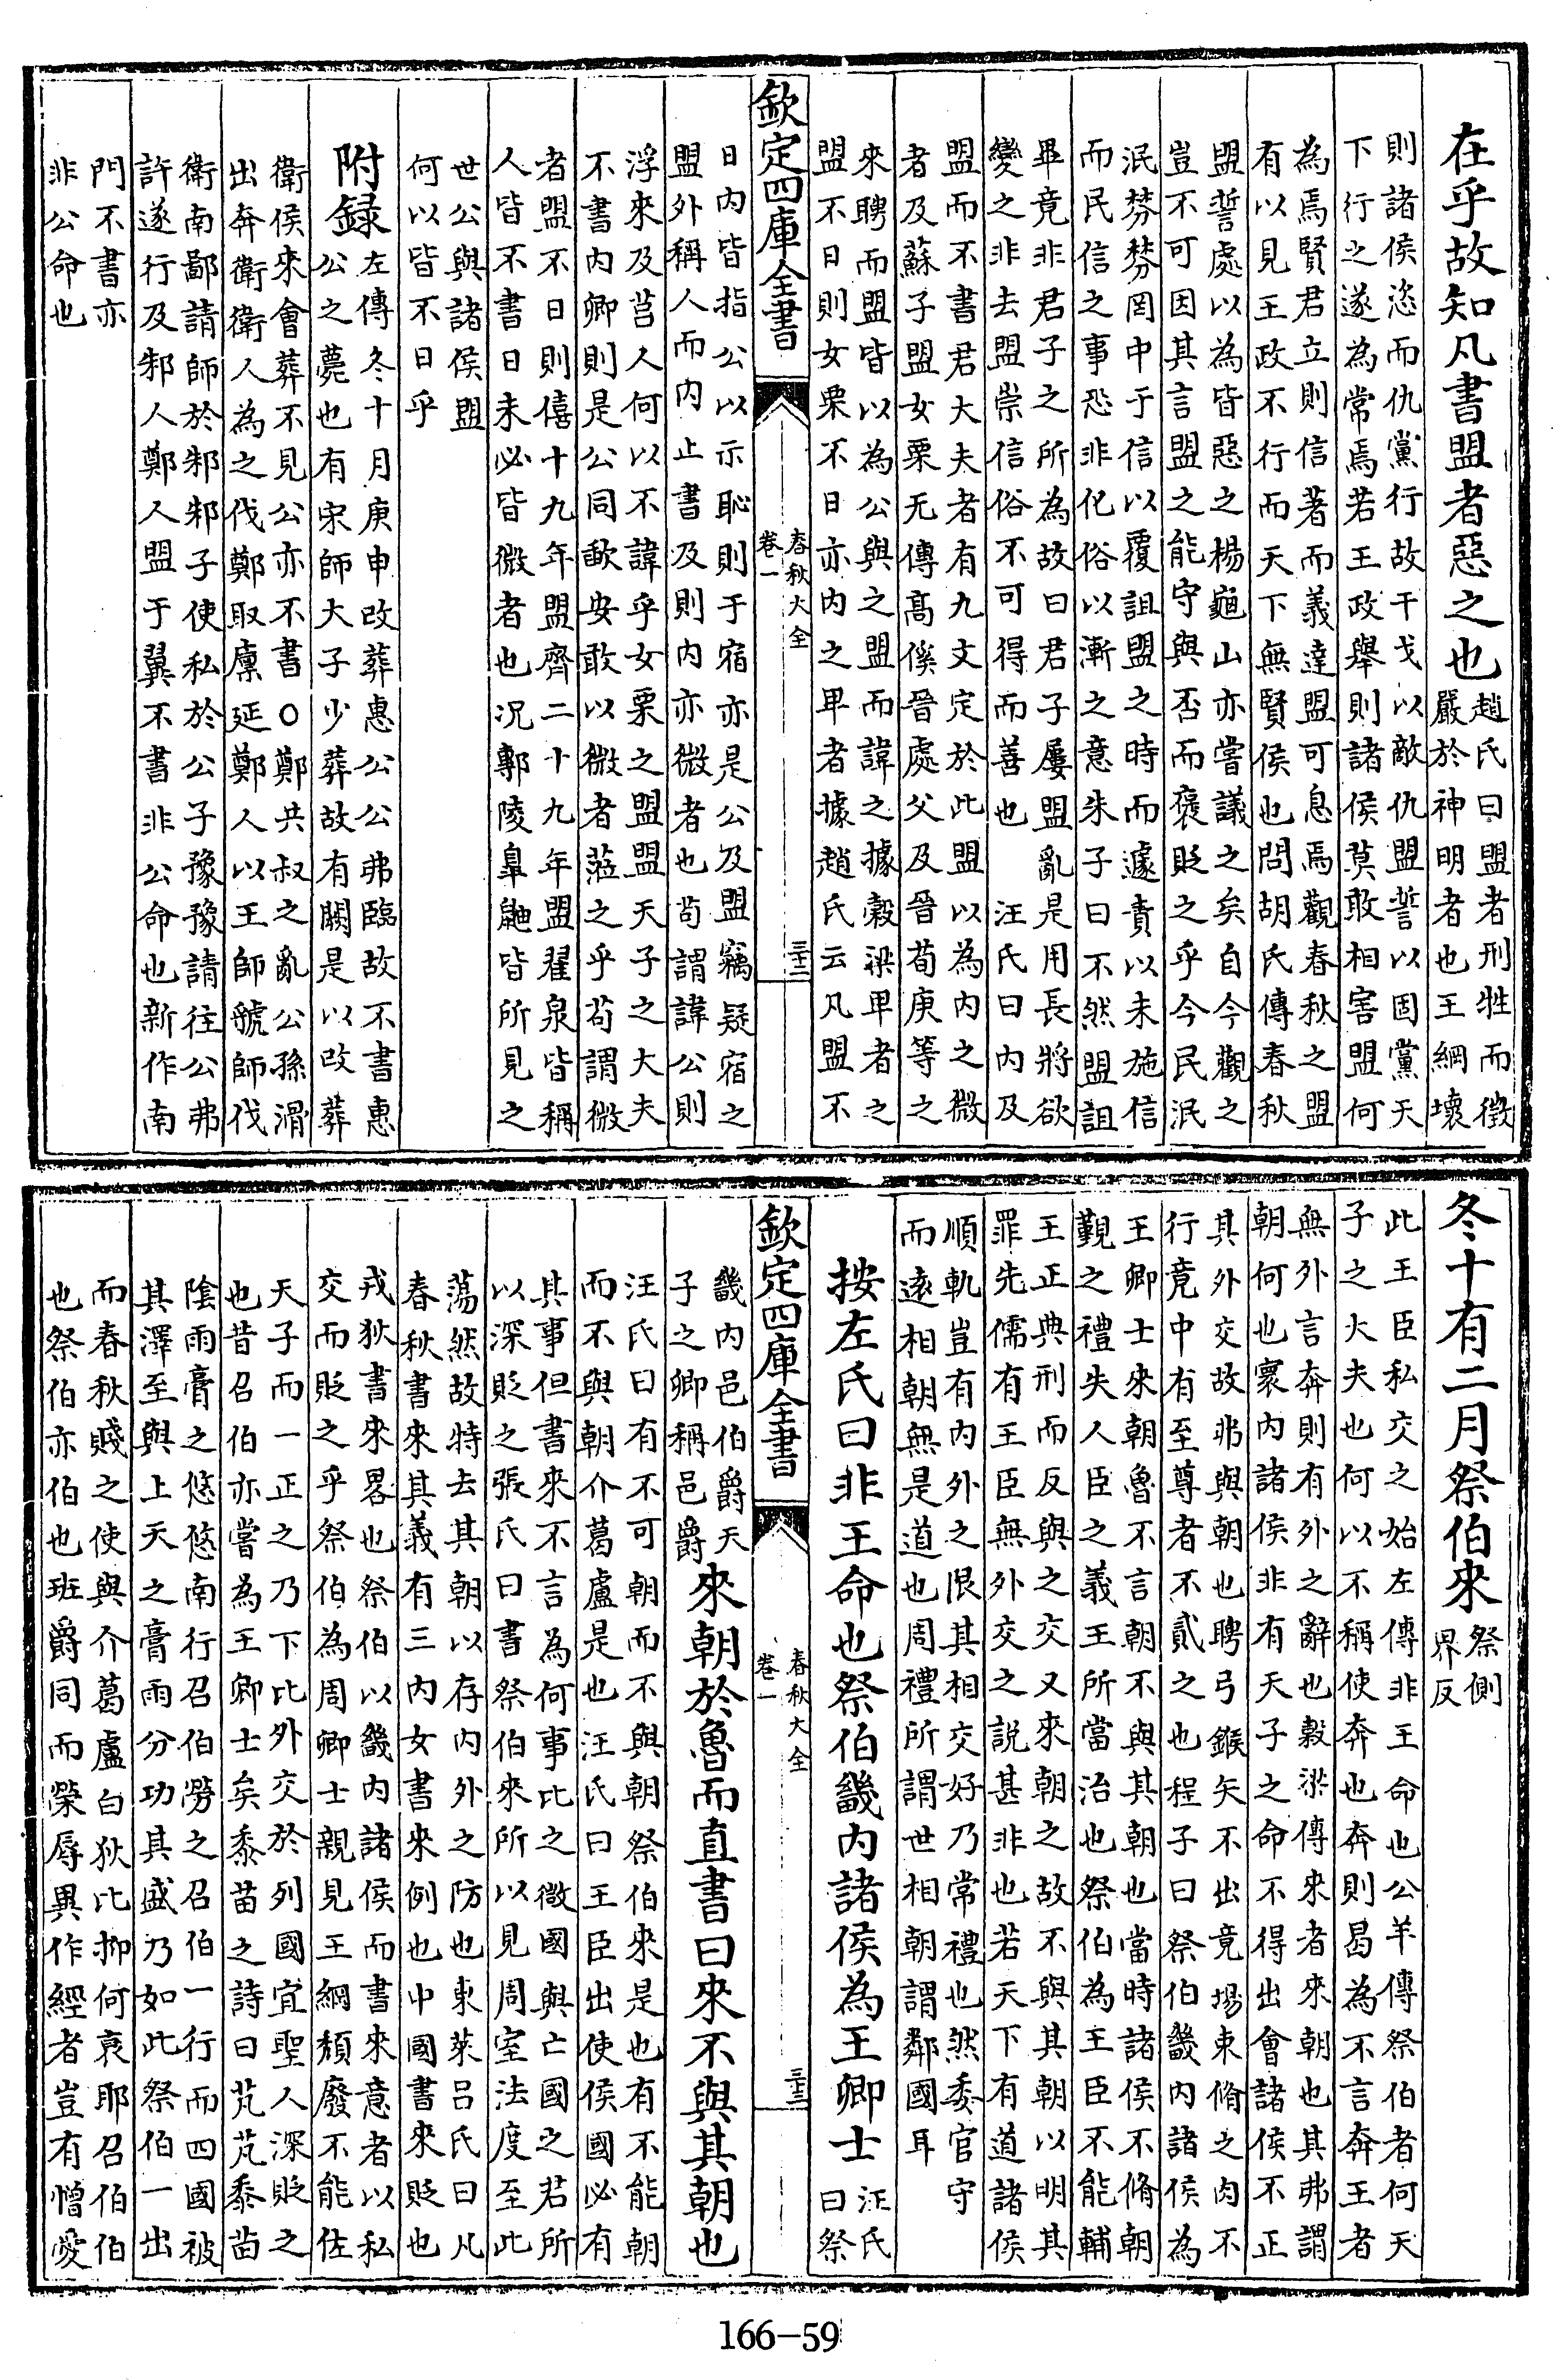 在乎故知凡書盟者惡之也
趙氏曰盟者刑牲而徵
嚴於神明者也王綱壊
則諸侯恣而仇黨行故干戈以敵仇盟誓以固黨天
下行之遂為常焉若王政舉則諸侯莫敢相害盟何
為焉賢君立則信著而義達盟可息焉觀春秋之盟
有以見王政不行而天下無賢侯也問胡氏傳春秋
盟誓處以為皆惡之楊龜山亦嘗議之矣自今觀之
豈不可因其言盟之能守與否而褒貶之乎今民泯
泯棼棼罔中于信以覆詛盟之時而遽責以未施信
而民信之事恐非化俗以漸之意朱子曰不然盟詛
畢竟非君子之所為故曰君子屢盟亂是用長將欲
變之非去盟崇信俗不可得而善也 汪氏曰内及
盟而不書君大夫者有九文定於此盟以為内之微
者及蘇子盟女栗无傳髙傒晉處父及晉荀庚等之
來聘而盟皆以為公與之盟而諱之據穀梁卑者之
盟不日則女栗不日亦内之卑者據趙氏云凡盟不
欽定四庫全書
春秋大全
卷一
三十二
日内皆指公以示恥則于宿亦是公及盟竊疑宿之
盟外稱人而内止書及則内亦微者也苟謂諱公則
浮來及莒人何以不諱乎女栗之盟盟天子之大夫
不書内卿則是公同歃安敢以微者蒞之乎苟謂微
者盟不日則僖十九年盟齊二十九年盟翟泉皆稱
人皆不書日未必皆微者也况鄟陵臯鼬皆所見之
世公與諸侯盟
何以皆不日乎
附録
左傳冬十月庚申改葬惠公公弗臨故不書惠
公之薨也有宋師大子少葬故有闕是以改葬
衛侯來會葬不見公亦不書○鄭共叔之亂公孫滑
出奔衛衛人為之伐鄭取廪延鄭人以王師虢師伐
衛南鄙請師於邾邾子使私於公子豫豫請往公弗
許遂行及邾人鄭人盟于翼不書非公命也新作南
門不書亦
非公命也
冬十有二月祭伯來
祭側
界反
此王臣私交之始左傳非王命也公羊傳祭伯者何天
子之大夫也何以不稱使奔也奔則曷為不言奔王者
無外言奔則有外之辭也穀梁傳來者來朝也其弗謂
朝何也寰内諸侯非有天子之命不得出會諸侯不正
其外交故弗與朝也聘弓鍭矢不出竟場束脩之肉不
行竟中有至尊者不貳之也程子曰祭伯畿内諸侯為
王卿士來朝魯不言朝不與其朝也當時諸侯不脩朝
覲之禮失人臣之義王所當治也祭伯為王臣不能輔
王正典刑而反與之交又來朝之故不與其朝以明其
罪先儒有王臣無外交之説甚非也若天下有道諸侯
順軌豈有内外之限其相交好乃常禮也然委官守
而逺相朝無是道也周禮所謂世相朝謂鄰國耳
按左氏曰非王命也祭伯畿内諸侯為王卿士
汪氏
曰祭
欽定四庫全書
春秋大全
卷一
三十三
畿内邑伯爵天
子之卿稱邑爵
來朝於魯而直書曰來不與其朝也
汪氏曰有不可朝而不與朝祭伯來是也有不能朝
而不與朝介葛盧是也汪氏曰王臣出使侯國必有
其事但書來不言為何事比之微國與亡國之君所
以深貶之張氏曰書祭伯來所以見周室法度至此
蕩然故特去其朝以存内外之防也東萊吕氏曰凡
春秋書來其義有三内女書來例也中國書來貶也
戎狄書來畧也祭伯以畿内諸侯而書來意者以私
交而貶之乎祭伯為周卿士親見王綱頽廢不能佐
天子而一正之乃下比外交於列國宜聖人深貶之
也昔召伯亦嘗為王卿士矣黍苗之詩曰芃芃黍苗
隂雨膏之悠悠南行召伯勞之召伯一行而四國被
其澤至與上天之膏雨分功其盛乃如此祭伯一出
而春秋賤之使與介葛盧白狄比抑何衰耶召伯伯
也祭伯亦伯也班爵同而榮辱異作經者豈有憎愛
166-59